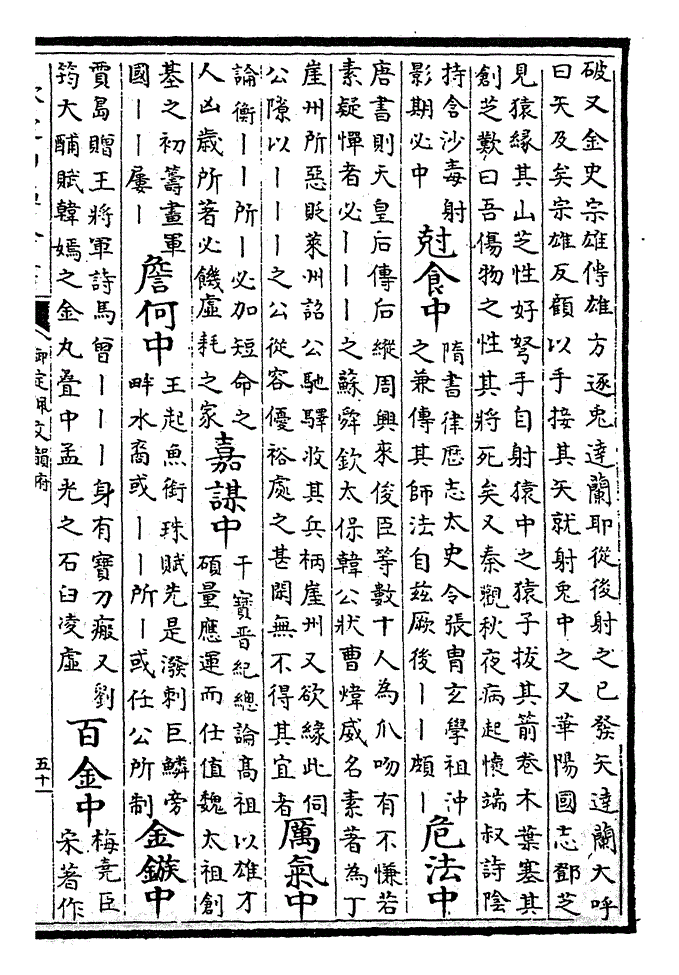 破又金史宗雄傳雄方逐兔達蘭耶從後射之已發矢達蘭大呼
曰矢及矣宗雄反顧以手接其矢就射兔中之又華陽國志鄧芝
見猿緣其山芝性好弩手自射猿中之猿子拔其箭卷木葉塞其
創芝歎曰吾傷物之性其將死矣又秦觀秋夜病起懷端叔詩陰
持含沙毒射
影期必中
尅食中
隋書律歷志太史令張胄玄學祖沖
之兼傳其師法自兹厥後丨丨頗丨
危法中
唐書則天皇后傳后縱周興來俊臣等數十人為爪吻有不慊若
素疑憚者必丨丨丨之蘇舜欽太保韓公狀曹煒威名素著為丁
崖州所惡貶萊州詔公馳驛收其兵柄崖州又欲緣此伺
公隙以丨丨丨之公從容優裕處之甚閑無不得其宜者
厲氣中
論衡丨丨所丨必加短命之
人凶歲所著必饑虛耗之家
嘉謀中
干寶晉紀總論高祖以雄才
碩量應運而仕值魏太祖創
基之初籌畫軍
國丨丨屢丨
詹何中
王起魚銜珠賦先是潑刺巨鱗旁
畔水裔或丨丨所丨或任公所制
金鏃中
賈島贈王將軍詩馬曾丨丨丨身有寶刀瘢又劉
筠大酺賦韓嫣之金丸疊中孟光之石臼凌虛
百金中
梅堯臣
宋著作
御定佩文韻府
五十一